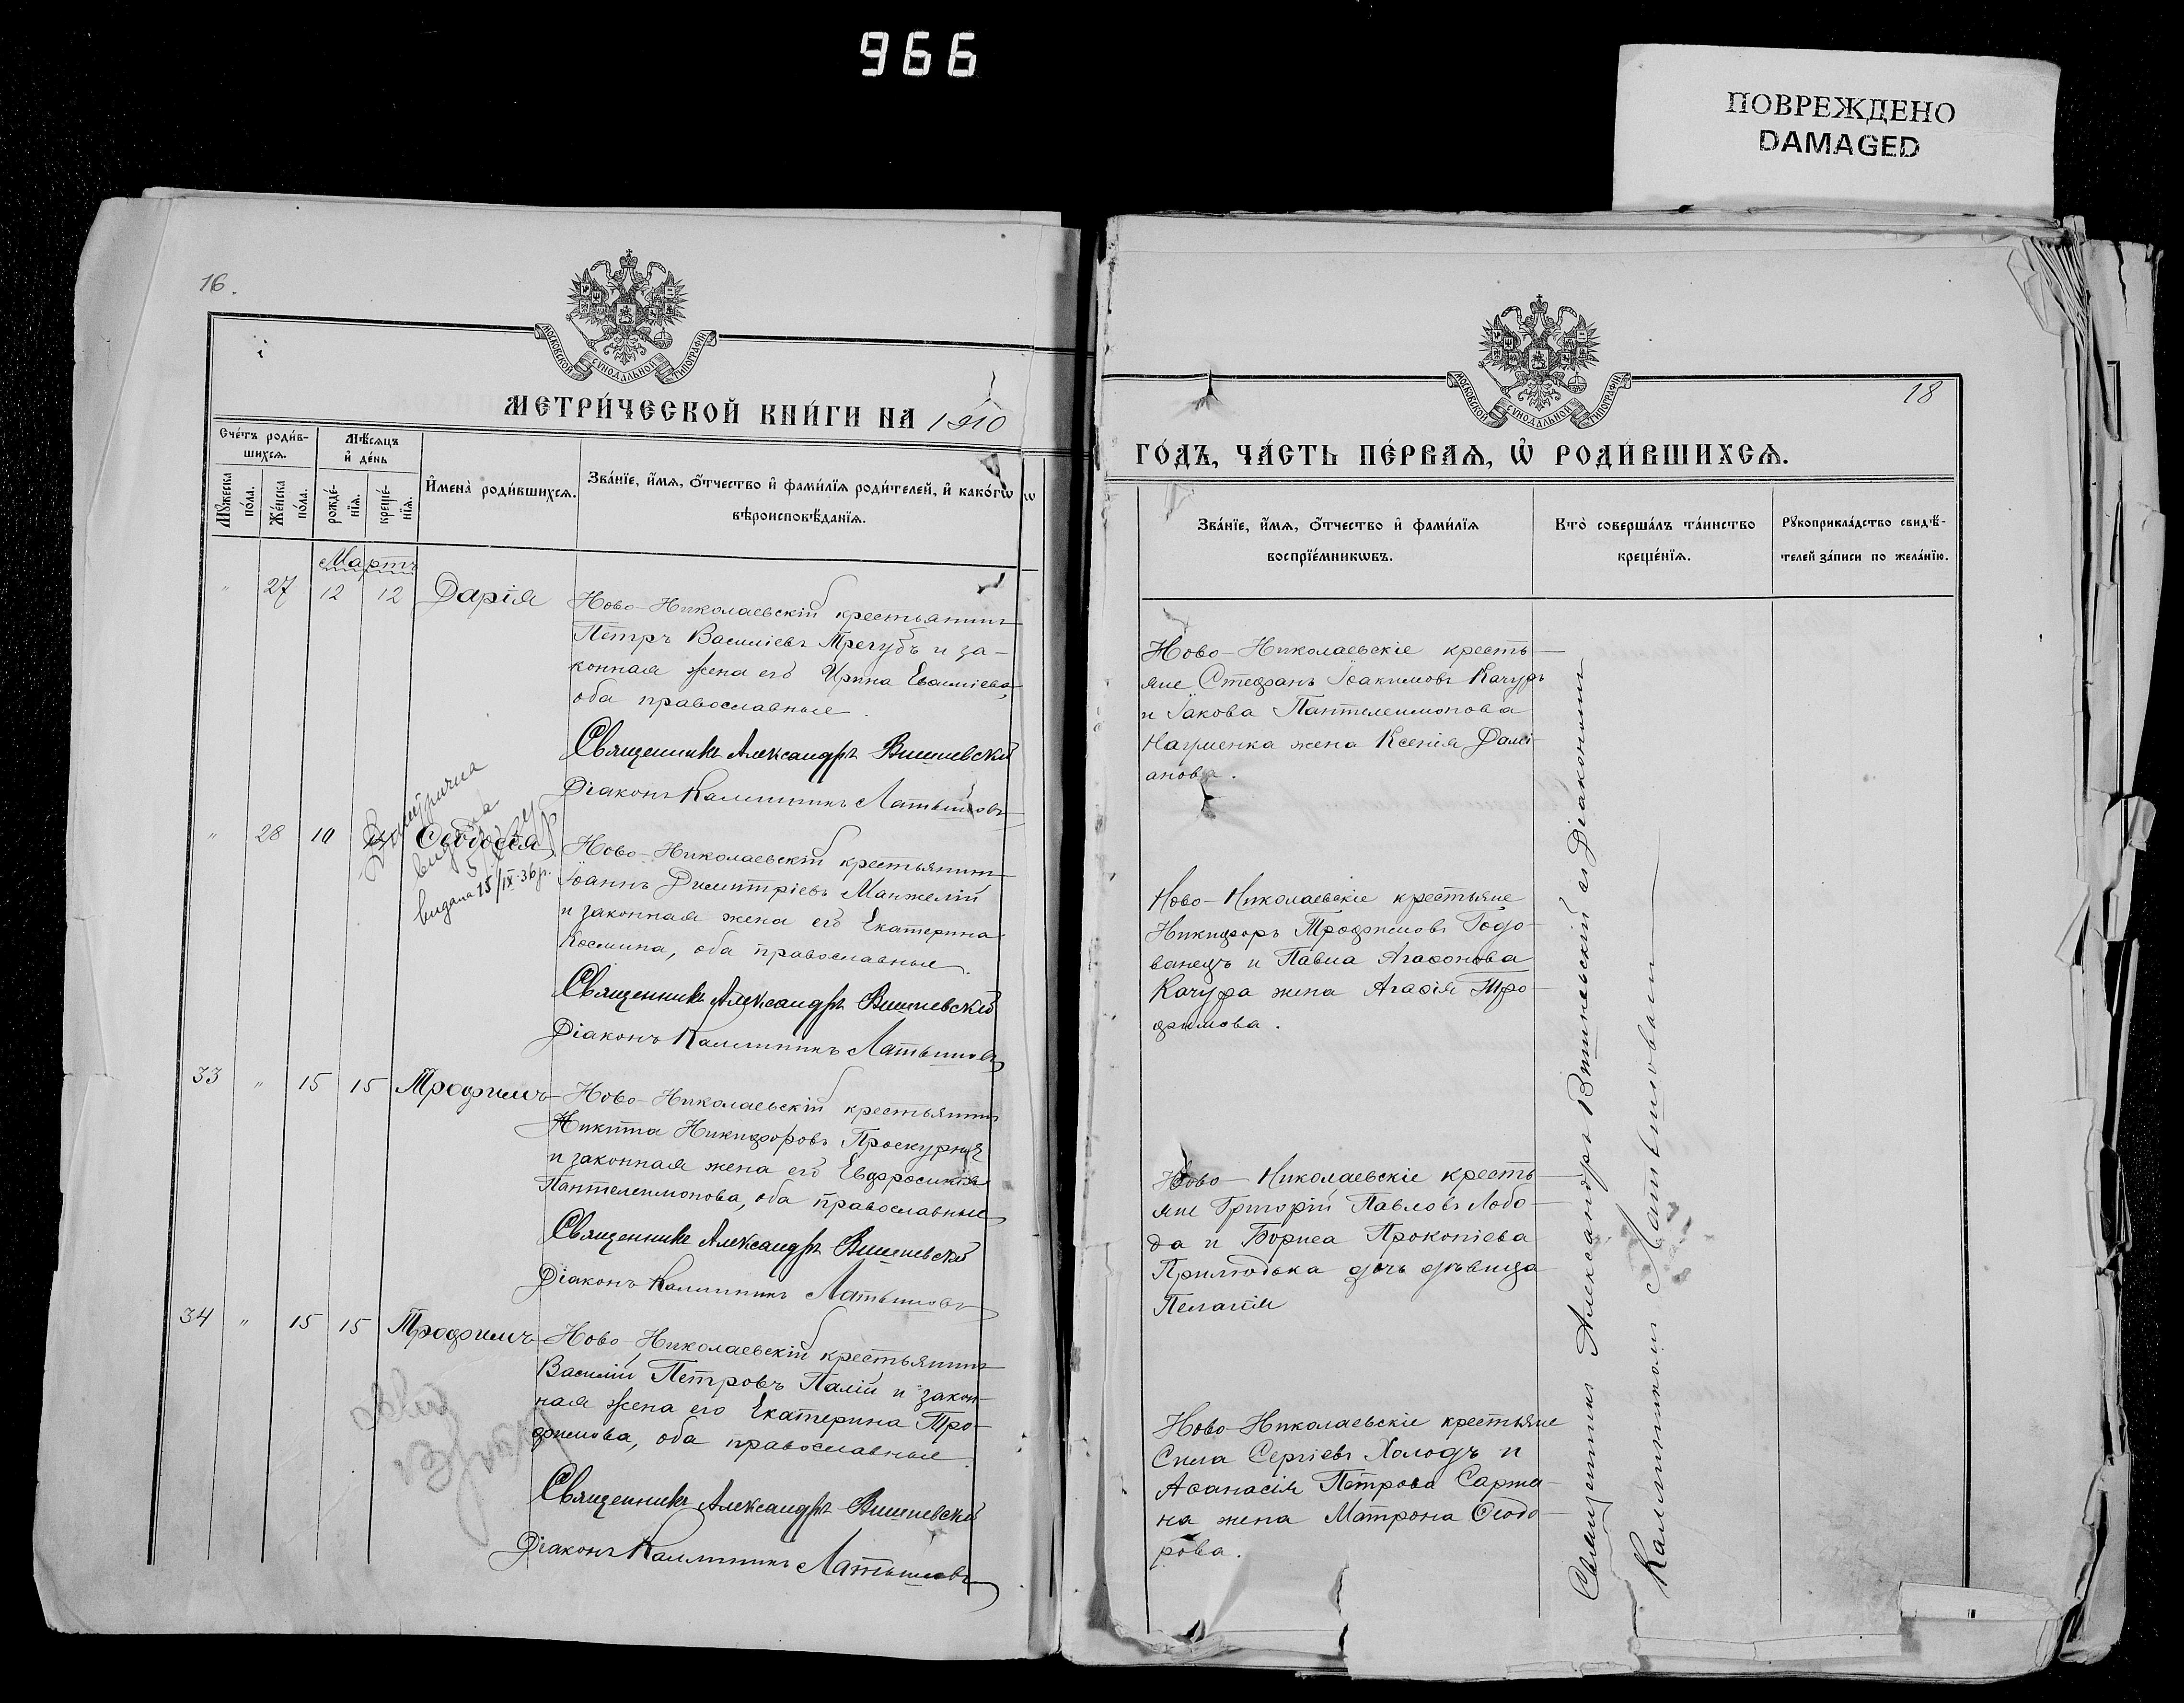 966
ПОВРЕЖДЕНО
DAMAGED
16.
МОСКОВСКОЙ СѴНОДАЛЬНОЙ ТИПОГРАФІИ
МЕТРИ́ЧЕСКОЙ КНИ́ГИ НА 1910
Сче́тъ роди́в-
шихсѧ.
Мѣ́сѧцъ
и҆ де́нь
Мꙋ́жеска
по́ла.
Же́нска
по́ла.
рожде́-
нїѧ.
креще́-
нїѧ.
И҆мена̀ роди́вшихсѧ.
Зва́нїе, и҆́мѧ, ѻ҆́тчество и҆ фами́лїѧ роди́телей, и҆ како́гѡ
вѣроисповѣ́данїѧ.
Мартъ
" 27 12 12 Дарія
Ново-Николаевскій крестьянинъ
Петръ Василіевъ Трегубъ и за-
конная жена его Ирина Евсиміева
оба православные.
Священникъ Александръ Вишневскій
Діаконъ Каллиникъ Латышовъ
" 28 10 Ѳеодосія
видана 15/IX-36р.
Ново-Николаевскій крестьянинъ
Іоаннъ Димитріевъ Манжелій
и законная жена его Екатерина
Космина, оба православные.
Священникъ Александръ Вишневскій
Діаконъ Каллиникъ Латышовъ
33 " 15 15 Трофимъ
Ново-Николаевскій крестьянинъ
Никита Никифоровъ Проскурня
и законная жена его Евфросинія
Пантелеимонова, оба православные
Священникъ Александръ Вишневскій
Діаконъ Каллиникъ Латышовъ
34 " 15 15 Трофимъ
Ново-Николаевскій крестьянинъ
Василій Петровъ Палій и закон-
ная жена его Екатерина Тро-
фимова, оба православные.
Священникъ Александръ Вишневскій
Діаконъ Каллиникъ Латышовъ
18
МОСКОВСКОЙ СѴНОДАЛЬНОЙ ТИПОГРАФІИ
ГО́ДЪ, ЧА́СТЬ ПЕ́РВАѦ, Ѡ҆ РОДИ́ВШИХСѦ.
Зва́нїе, и҆́мѧ, ѻ҆́тчество и҆ фами́лїѧ
воспрїе́мникѡвъ.
Кто̀ соверша́лъ та́инство
креще́нїѧ.
Рꙋкоприкла́дство свидѣ́-
телей за́писи по жела́нїю.
Ново-Николаевскіе кресть-
яне Стефанъ Іоакимовъ Качуръ
и Іакова Пантелеимонова
Науменка жена Ксенія Дамі-
анова.
Ново-Николаевскіе крестьяне
Никифоръ Трофимовъ Годо-
ванецъ и Павла Агаѳонова
Качура жена Агаѳія Тро-
фимова.
Ново-Николаевскіе кресть-
яне Григорій Павловъ Лобо-
да и Бориса Прокопіева
Прилюдька дочь дѣвица
Пелагія
Ново-Николаевскіе крестьяне
Сила Сергіевъ Холодъ и
Аѳанасія Петрова Саржа-
на жена Матрона Ѳеодо-
рова.
Священникъ Александръ Вишневскій съ Діакономъ
Каллиникомъ Латышовымъ